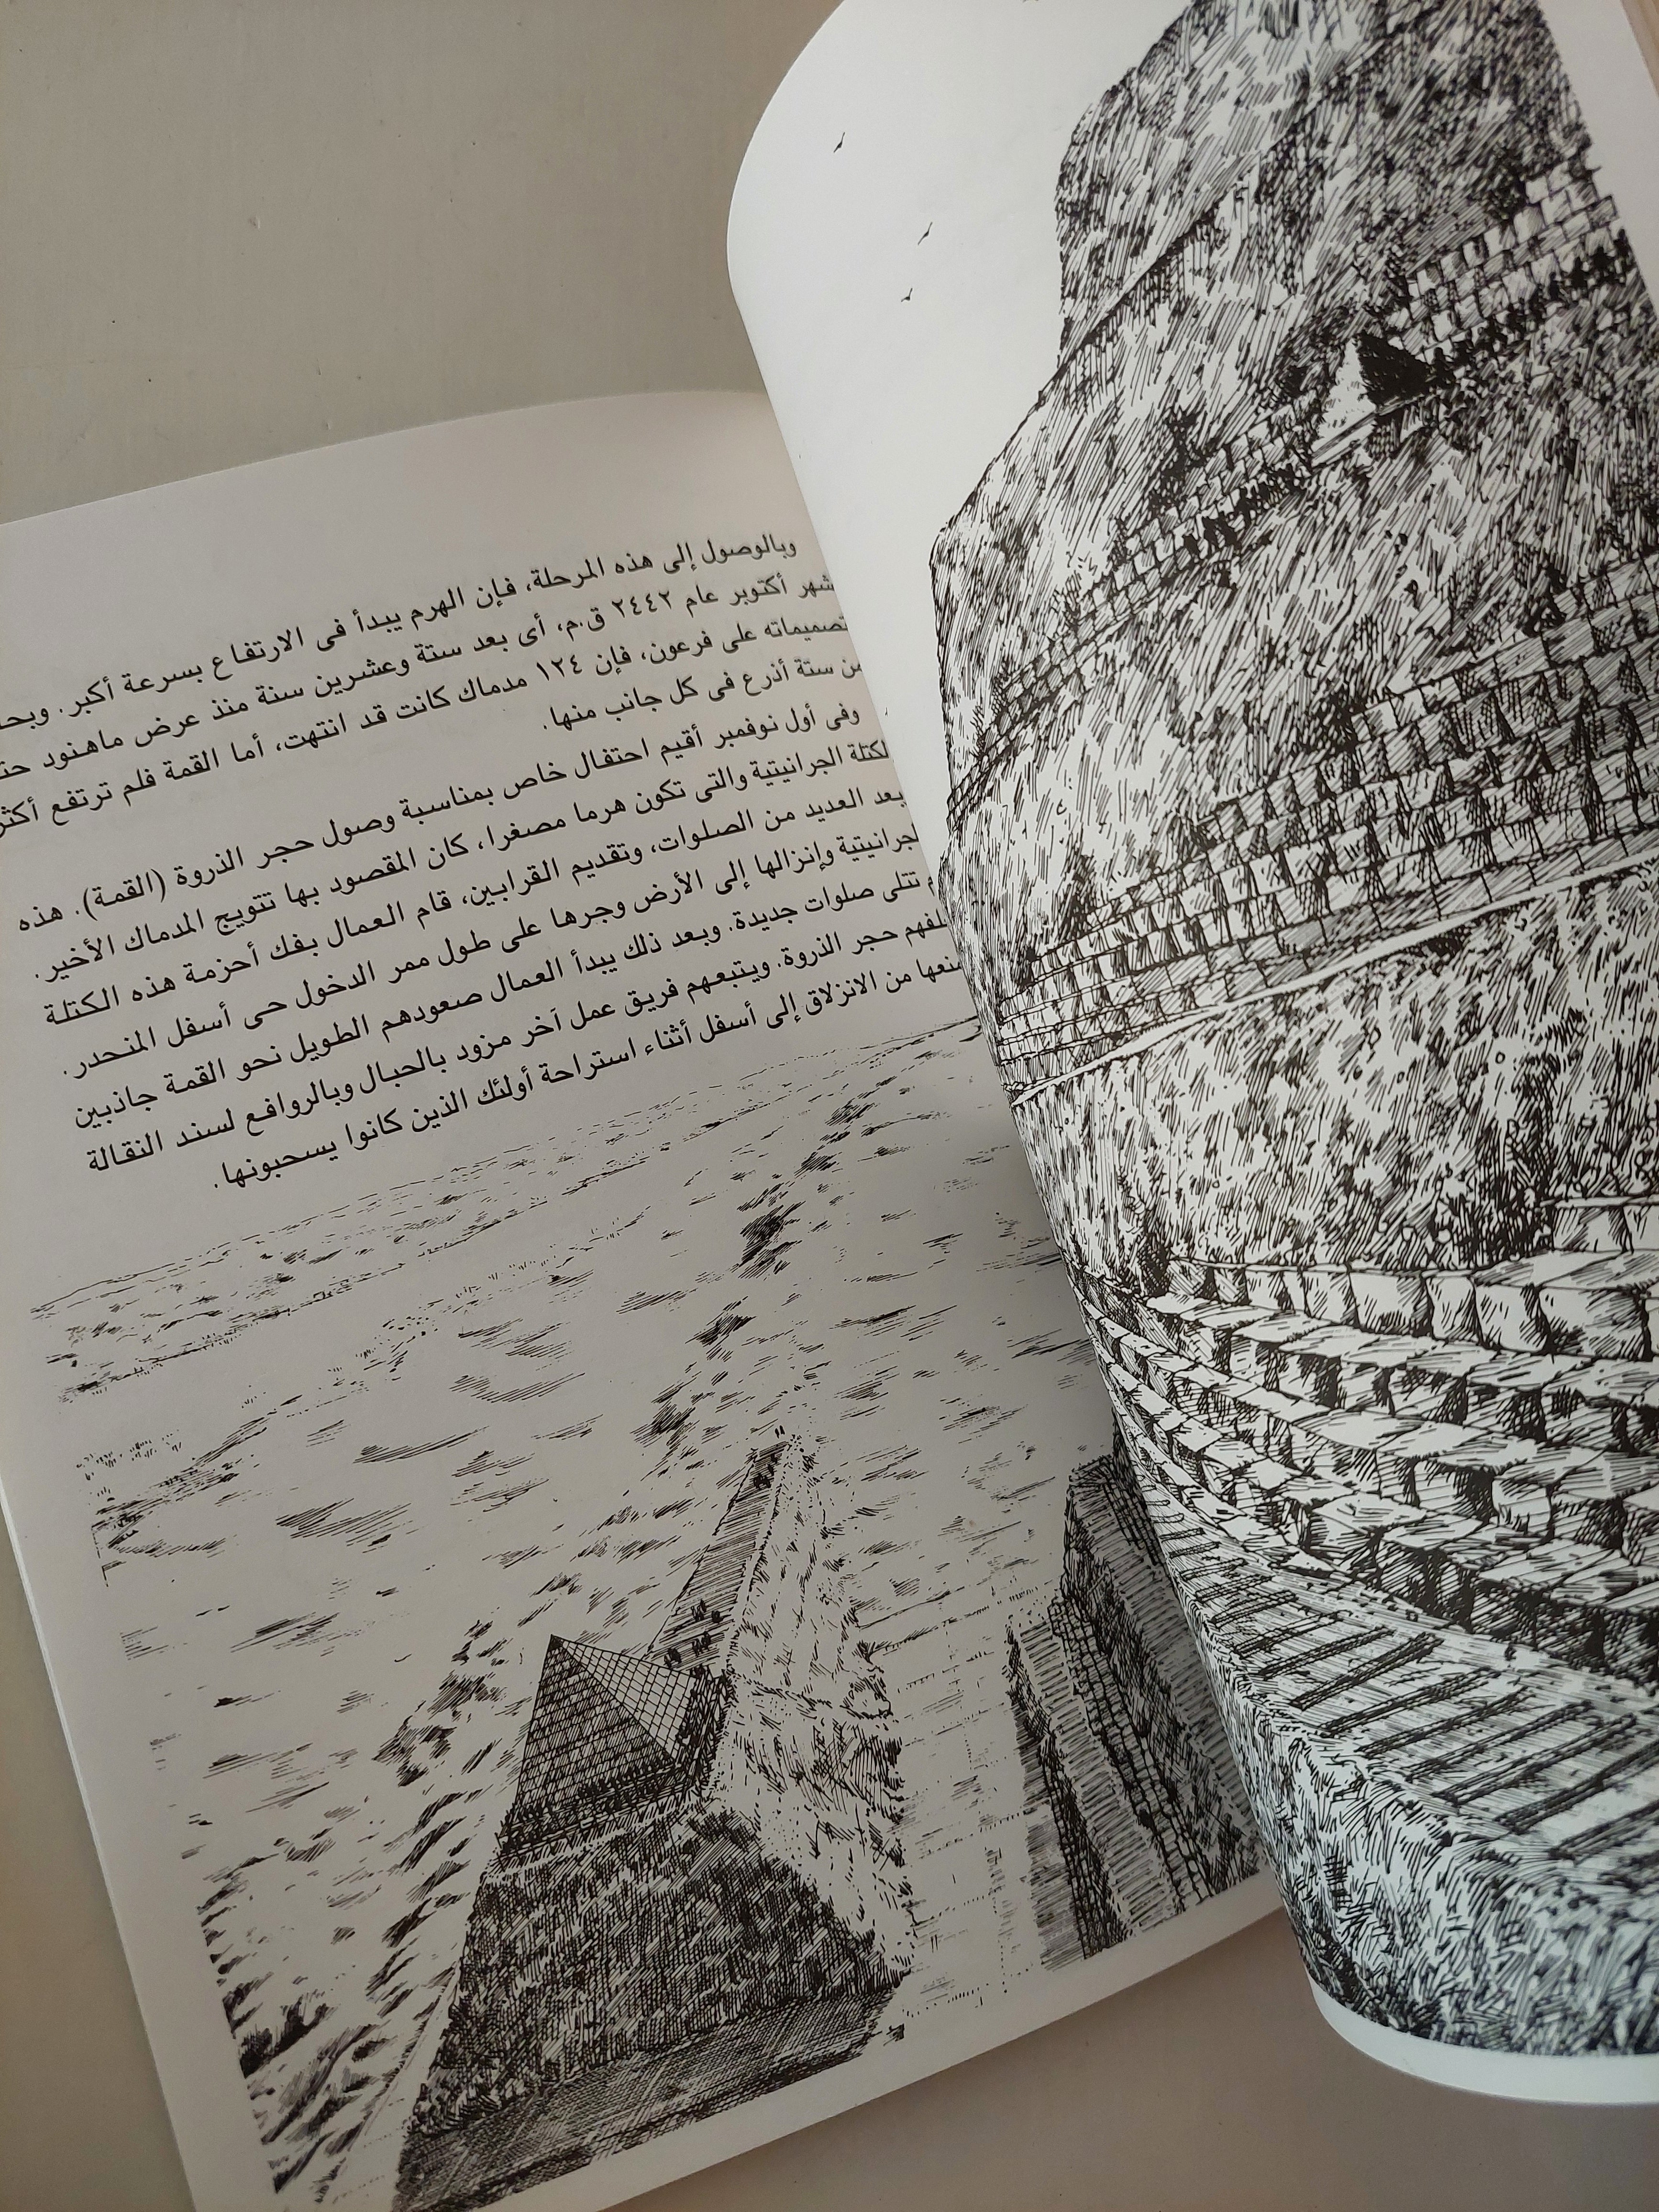 وبالوصول إلى هذه المرحلة، فإن الهرم يبدأ فى الارتفاع بسرعة أكبر.
شهر أكتوبر عام ٢٤٤٢ ق.م، أى بعد ستة وعشرين سنة منذ عرض ماهنود
تصميماته على فرعون، فإن ١٢٤ مدماك كانت قد انتهت، أما القمة فلم ترتفع أكثر
من ستة أذرع فى كل جانب منها.
وفى أول نوفمبر أقيم احتفال خاص بمناسبة وصول حجر الذروة (القمة). هذه
الكتلة الجرانيتية والتى تكون هرما مصغرا، كان المقصود بها تتويج المدماك الأخير.
بعد العديد من الصلوات، وتقديم القرابين، قام العمال بفك أحزمة هذه الكتلة
الجرانيتية وإنزالها إلى الأرض وجرها على طول ممر الدخول حى أسفل المنحدر.
تتلى صلوات جديدة. وبعد ذلك يبدأ العمال صعودهم الطويل نحو القمة جاذبين
خلفهم حجر الذروة. ويتبعهم فريق عمل آخر مزود بالحبال وبالروافع لسند النقالة
من الانزلاق إلى أسفل أثناء استراحة أولئك الذين كانوا يسحبونها.